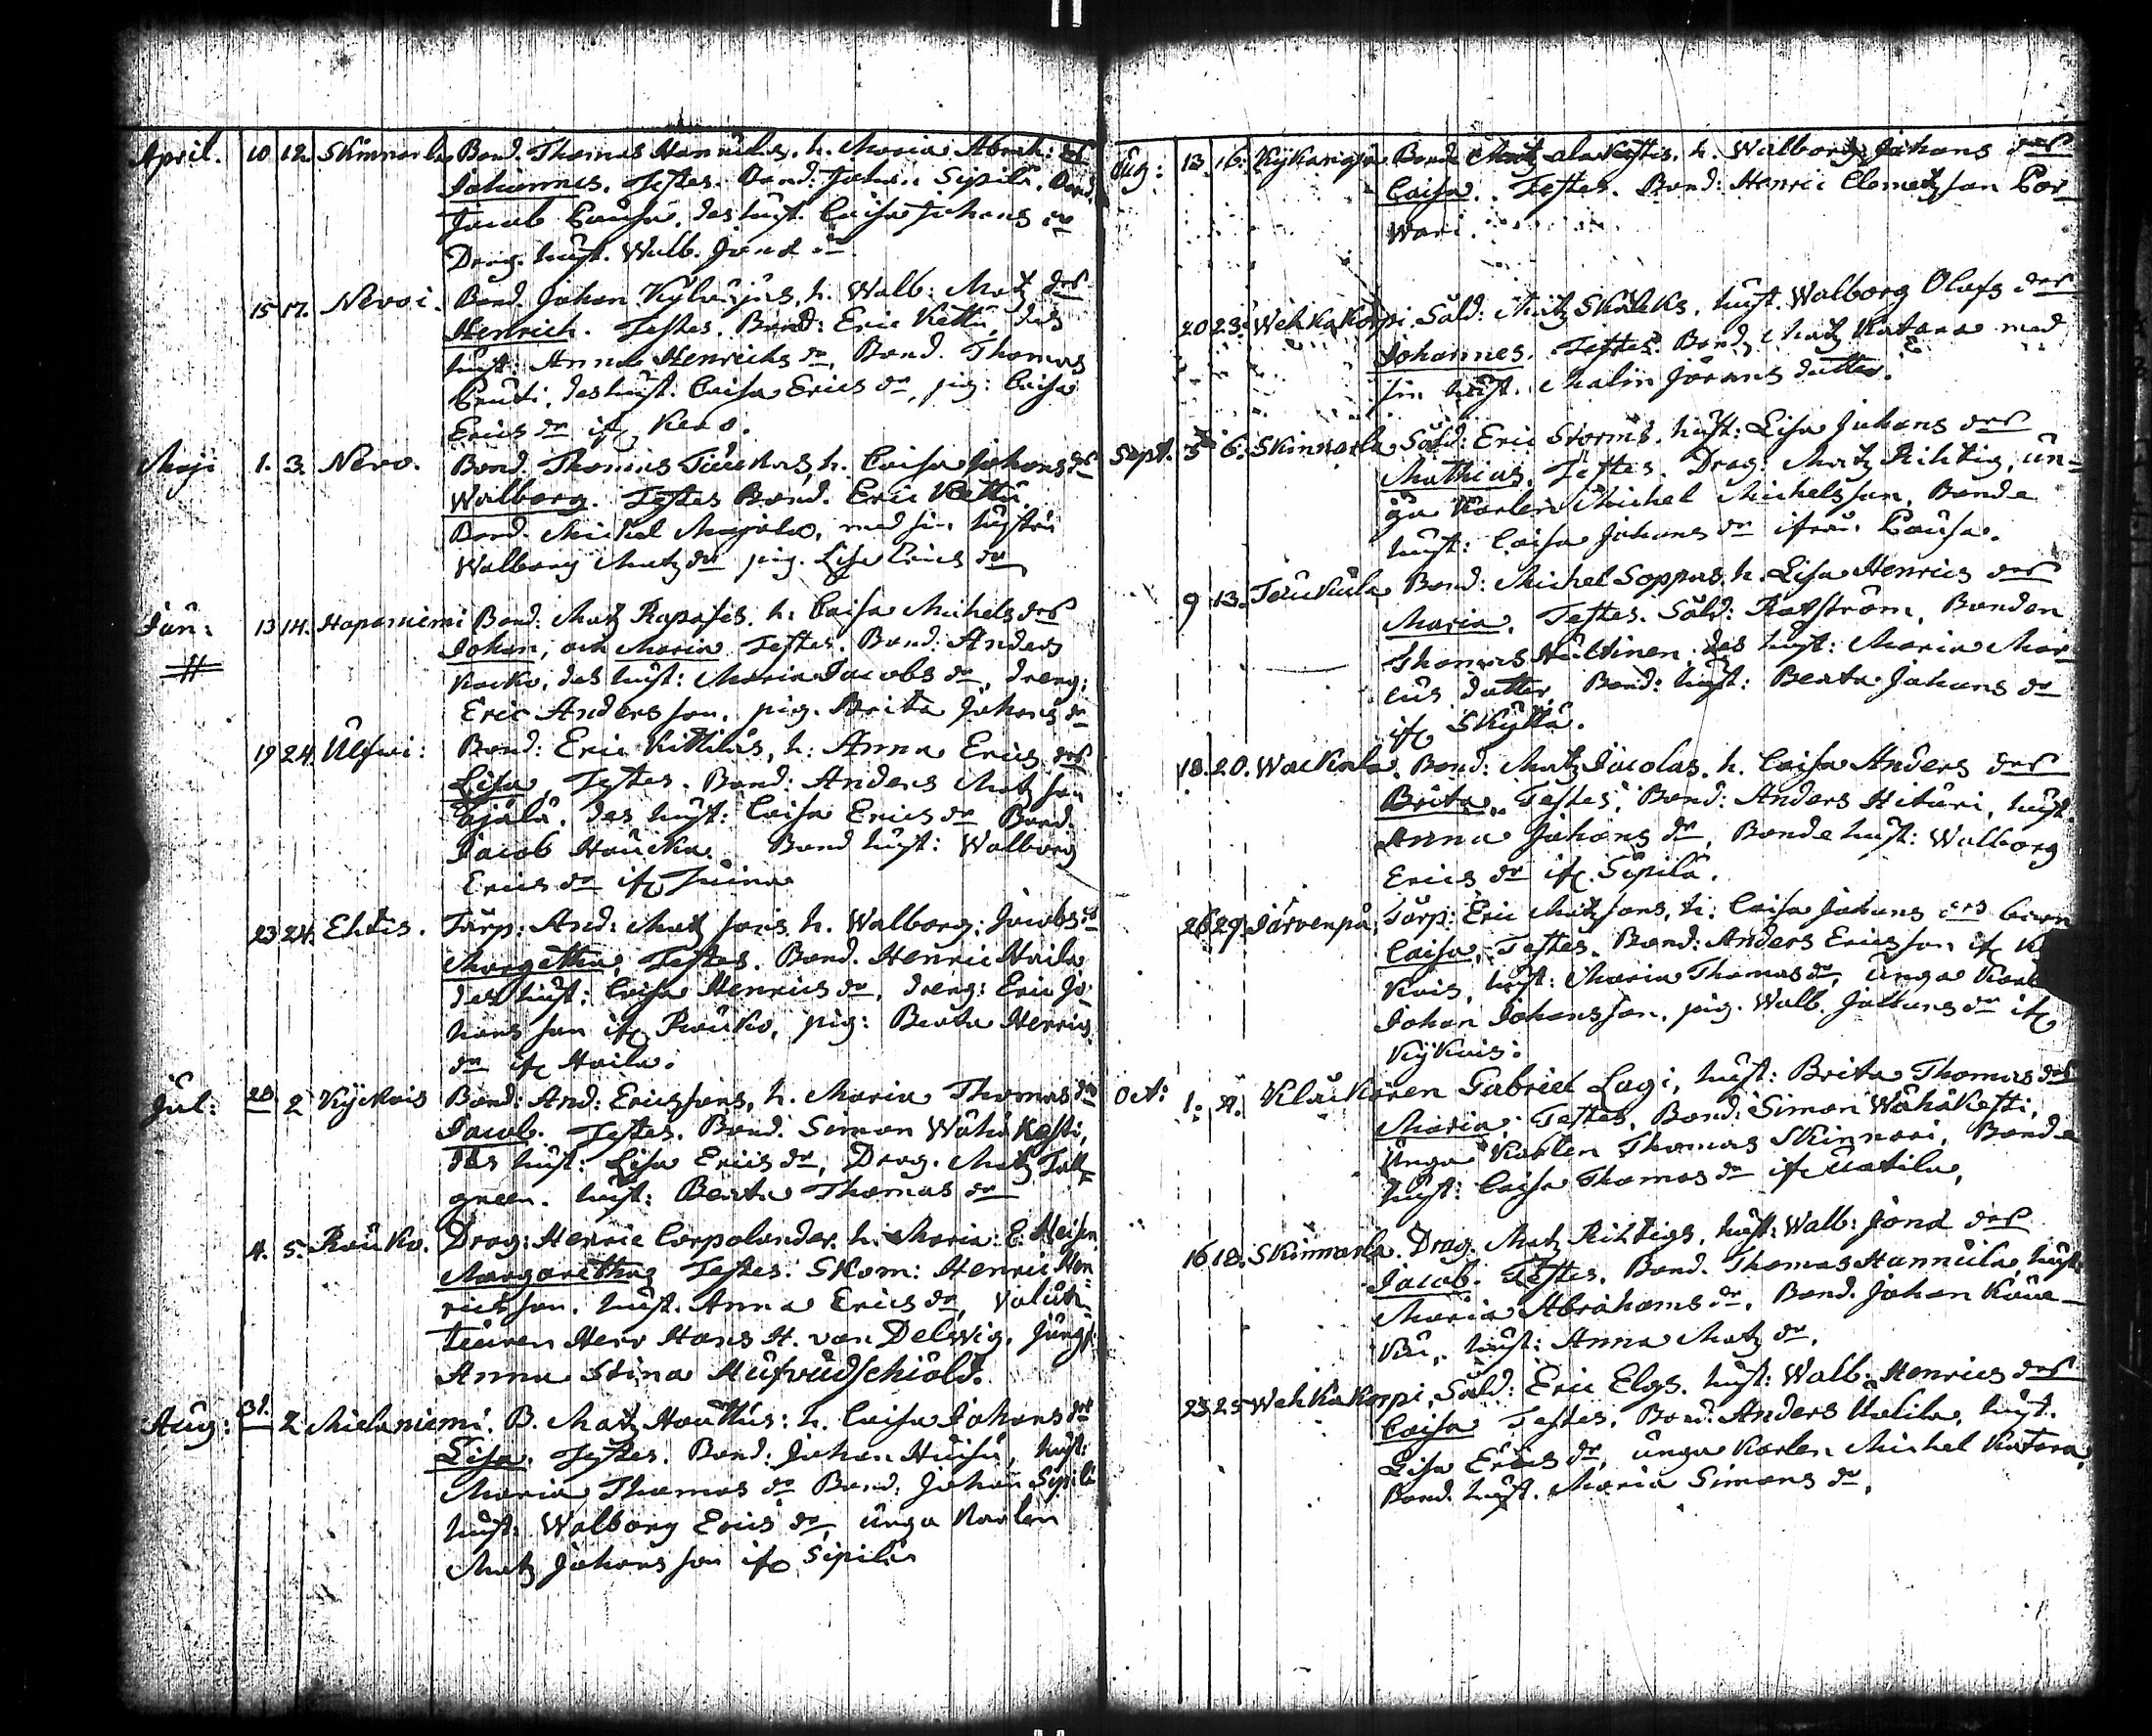 April. 10 12. Skinnarla Bond. Thomas Hannulas. h. Maria Abrah: dr
Johannes. Testes. Bond: Johan Sipilä. Bond.
Jacob Pausa, des hust. Caisa Johans dr
Drag. hust. Walb. Jonæ dr.
15 17. Nervoi. Bond. Johan h. Walb: Matz dr
Henrich. Testes. Bond: Eric Kettu, des
hust: Anna Henrichs dr, Bond. Thomas
des hust. Caisa Erics dr, pig: Caisa
Erics dr if Kero.
Maji 1. 3. Nervo. Bond. Thomas h. Caisa Johans dr
Walborg. Testes Bond. Eric Kettu
Bond. Michel Majala, med sin hustru
Walborg Matz dr pig. Lisa Erics dr
Jun: 13 14. Haponiemi Bond: Matz Rapases. h: Caisa Michels dr
Johan, och Maria Testes. Bond: Anders
Kocko, des hust: Maria Jacobs dr, dreng:
Eric Andersson, pig. Brita Johans dr
19 24. Ulfwi: Bond: Eric Kittiläs, h: Anna Erics dr
Lisa, Testes. Bond: Anders Matzson
des hust: Caisa Erics dr Bond.
Jacob Haucka. Bond hust: Walborg
Erics dr if
23 24. Ehtis. Torp: And: Matzsons h. Walborg: Jacobs dr
Margetha, Testes. Bond. Henric Haila
des hust: Caisa Henrics dr, dreng: Eric Jo-
hansson if Rouko, pig: Beata Henrics
dr if Haila.
Jul: 28 2 Kyckois Bond: And: Ericssons, h. Maria Thomas dr
Jacob. Testes. Bond. Simon Wähäkesti,
des hust: Lisa Erics dr, Drag. Matz
green. hust: Beata Thomas dr
4. 5. Rouko. Drag: Henric Corpolander. h. Maria: E.
Margaretha Testes. Skom: Henric Hen-
ricsson. hust. Anna Erics dr, Volun-
teuren Herr Hans H. von Delwig. Jungf.
Anna Stina Hufvudschiöld.
Aug: 31. 2 Mielaniemi. B. Matz Houttus: h. Caisa Johans dr
Lisa. Testes. Bond: Johan Huisu, hust:
Maria Thomas dr Bond: Johan Sipilä
hust: Walborg Erics dr, unga Karlen
Matz Johansson if Sipilä
Aug: 13. 16. Bonde Matz Alakestis. h. Walborg Johans dr
Caisa. Testes. Bond: Henric Clemetzson Por
wari.
20 23. Wehkakorpi. Sold: Matz Skalks, hust. Walborg Olofs dr
Johannes. Testes. Bond. Matz Katara med
sin hust. Malin Jörans dutter.
Sept. 5 6. Skinnarla Sold: Eric Storms, hust: Lisa Johans dr
Mathias. Testes. Drag: Matz Riktig, un-
ga Karlen Michel Michelsson, Bonde
hust: Caisa Johans dr ifrån Pausa.
9 13. Toukula Bond: Michel Soppas. h. Lisa Henrics dr
Maria. Testes. Sold: Ratström, Bonden
Thomas Hultinen, des hust: Maria Mar
cus dutter, Bond: hust: Beata Johans dr
if Skyttä.
18. 20. Wackola. Bond: Matz Jacolas. h. Caisa Anders dr
Brita. Testes. Bond: Anders Hituri, hust.
Anna Johans dr, Bonde hust: Walborg
Erics dr if. Sipilä.
26 29. Järvenpä: Torp: Eric Matzsons, h: Caisa Johans drs barn
Caisa, Testes. Bond: Anders Ericsson if
kois, hust: Maria Thomas dr, unga Karl
Johan Johansson, pig. Walb. Johans dr if
Kykois:
Oct: 1. 4. Gabriel Lagi, hust: Brita Thomas dr
Maria. Testes. Bond: Simon Wähäkesti,
Unga Karlen Thomas Skinnari, Bonde
hust: Caisa Thomas dr if Uotila,
16 18. Skinnarla. Drag. Matz Riktigs, hust: Walb: Jonæ dr
Jacob. Testes. Bond. Thomas Hannula, hust:
Maria Abrahams dr, Bond. Johan
hust: Anna Matz dr.
23 25 Wehkakorpi, Sold: Eric Elgs. hust: Walb: Henrics dr
Caisa Testes. Bond: Anders hust.
Lisa Erics dr, unga Karlen Michel Katara,
Bond. hust. Maria Simons dr.